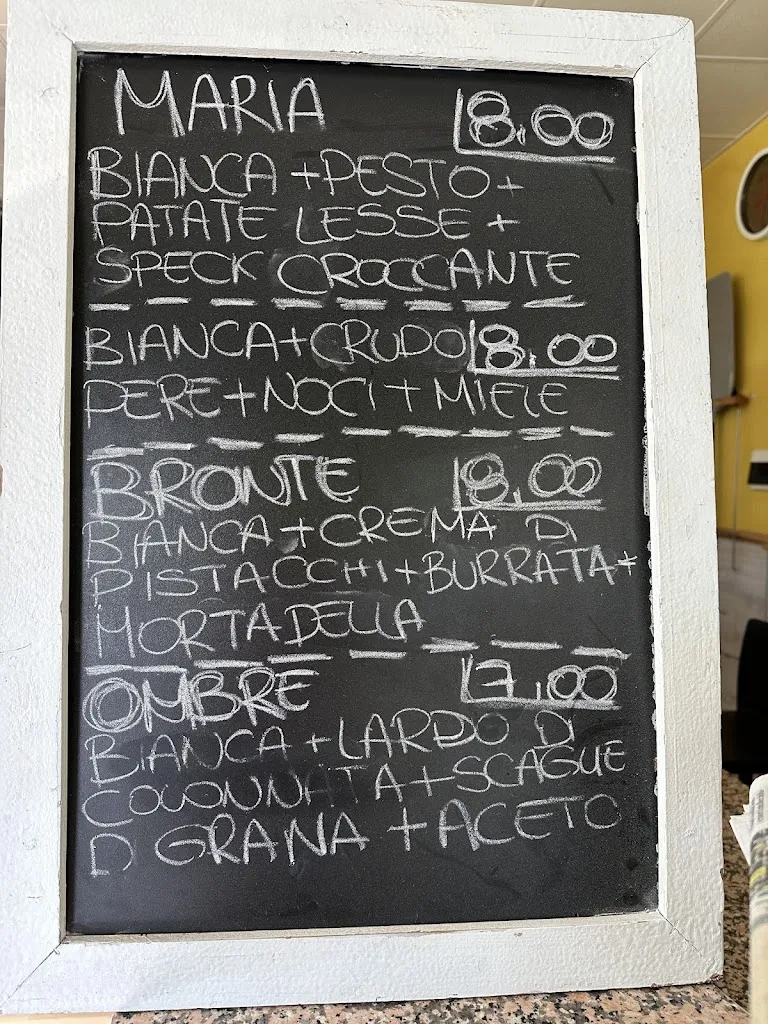 MARIA 8.00
BIANCA + PESTO +
PATATE LESSE +
SPECK CROCCANTE
BIANCA + CRUDO 8.00
PERE + NOCI + MIELE
BRONTE 8,00
BIANCA + CREMA DI
PISTACCHI + BURRATA +
MORTADELLA
OMBRE 7,00
BIANCA + LARDO DI
COLONNATA + SCAGLIE
D GRANA + ACETO